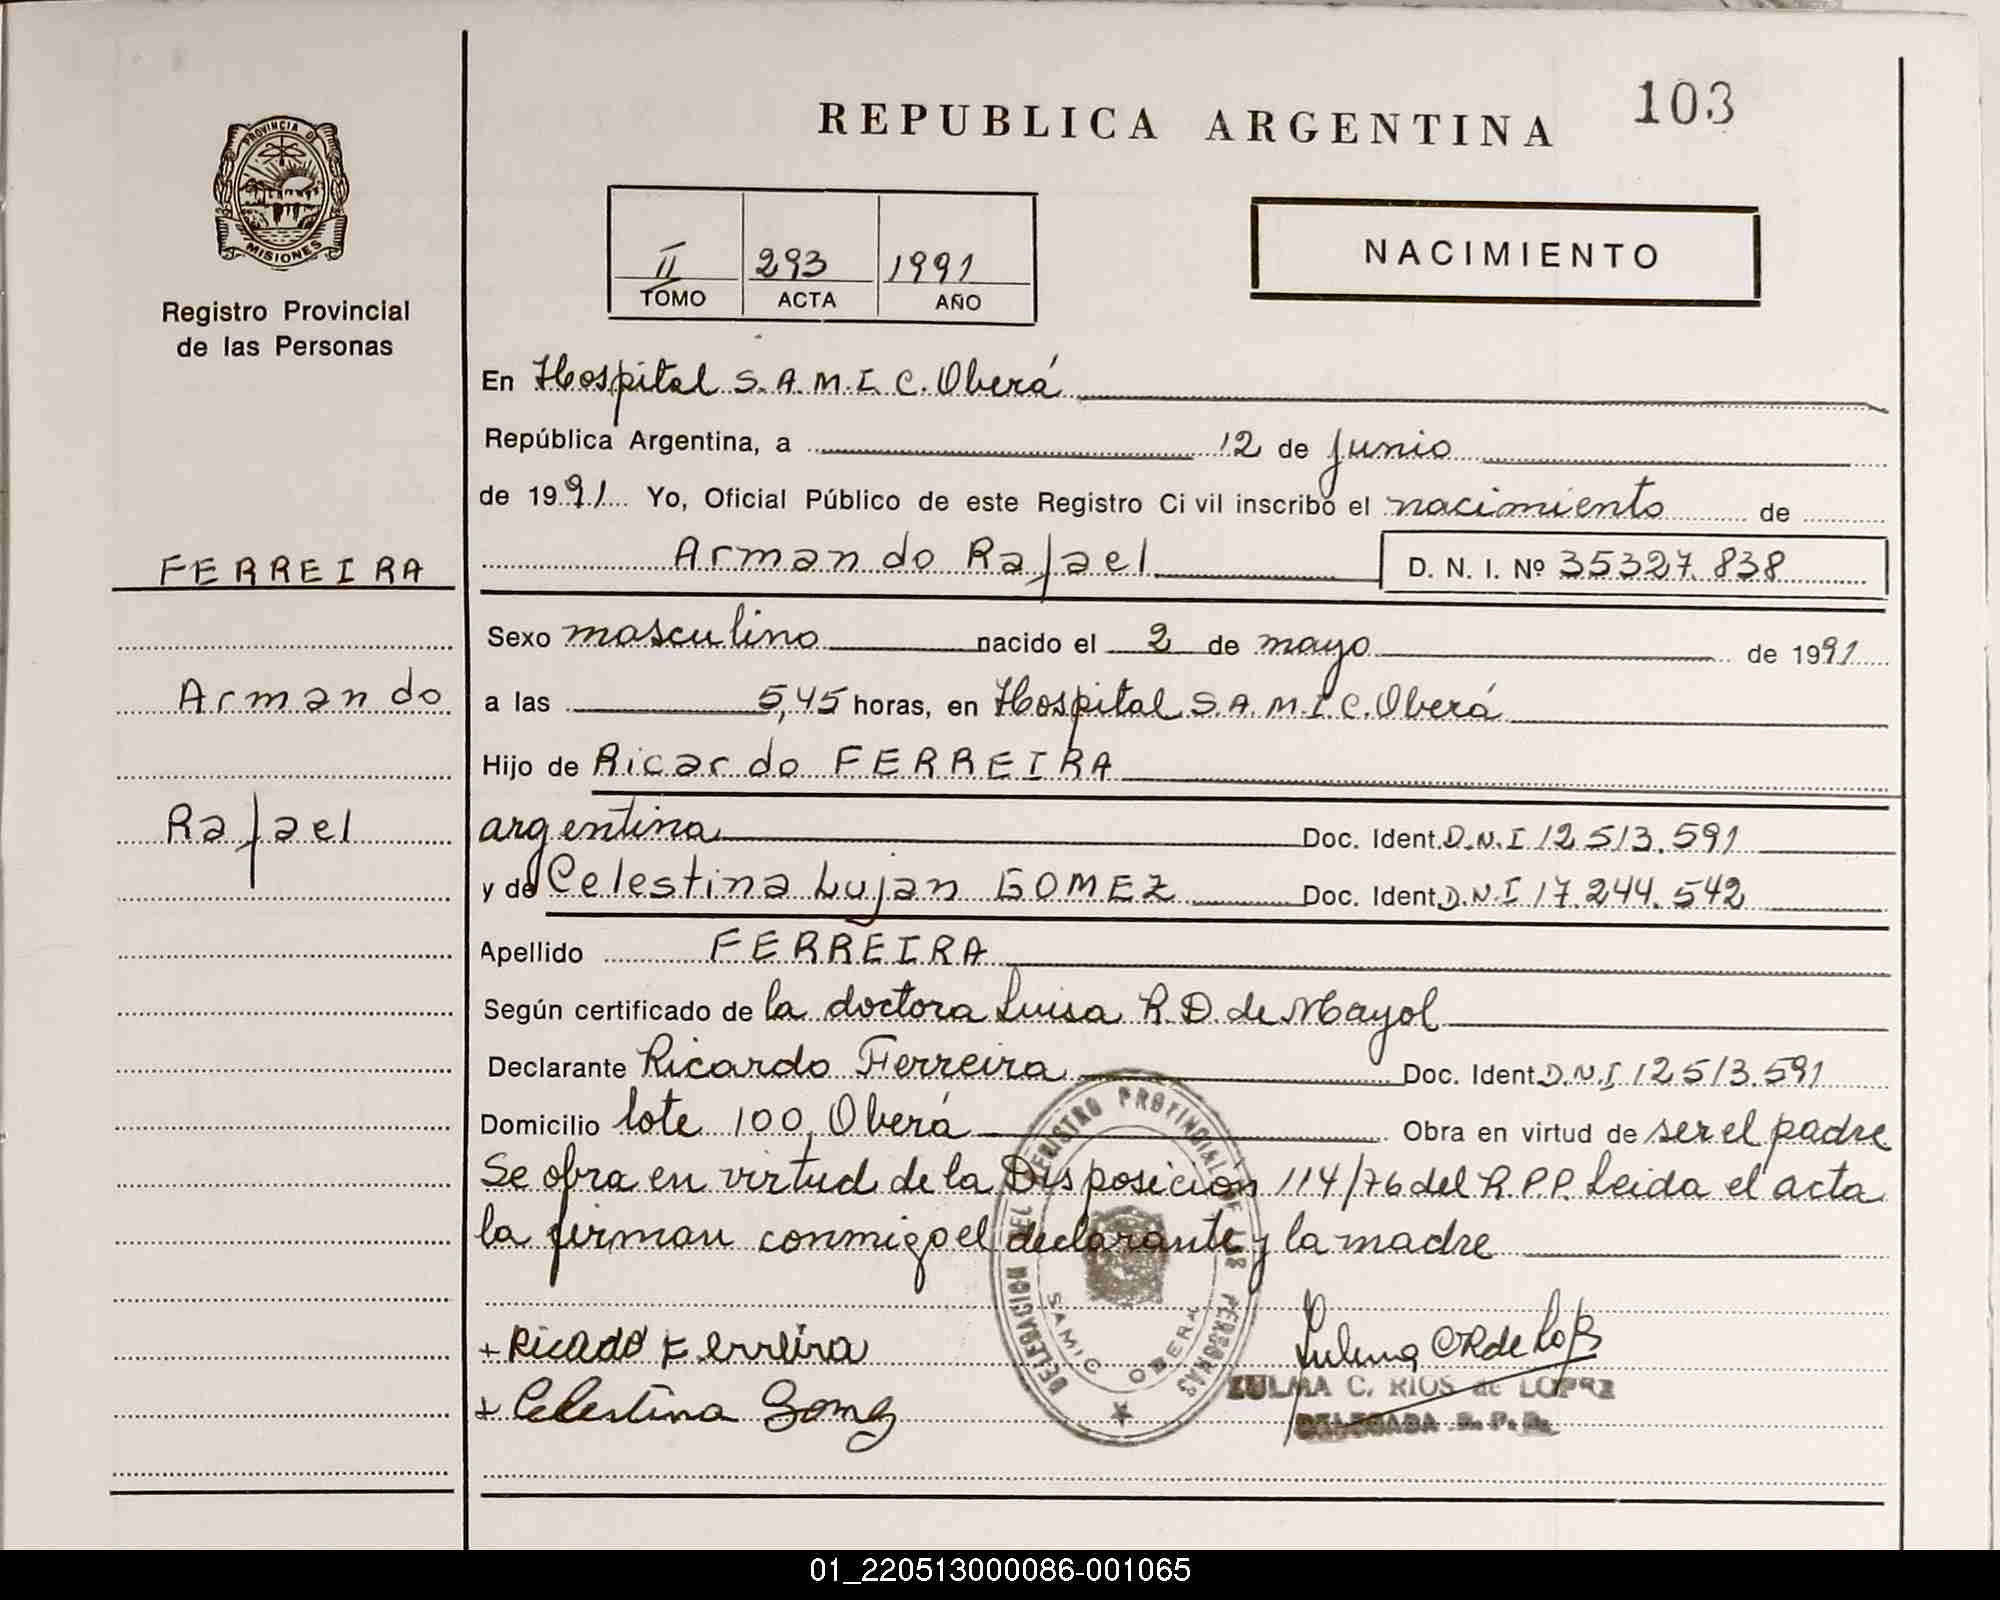 103
REPUBLICA ARGENTINA
PROVINCIA DE
MISIONES
Registro Provincial
de las Personas
II 293 1991
TOMO ACTA AÑO
NACIMIENTO
En Hospital S.A.M.I.C. Oberá
República Argentina, a 12 de junio
de 1991 Yo, Oficial Público de este Registro Civil inscribo el nacimiento de
FERREIRA
Armando Rafael D. N. I. Nº 35327.838
Sexo masculino nacido el 2 de mayo de 1991
Armando
a las 5,45 horas, en Hospital S.A.M.I.C. Oberá
Hijo de Ricardo FERREIRA
Rafael
argentina Doc. Ident. D.N.I 12.513.591
y de Celestina Lujan GOMEZ Doc. Ident. D.N.I 17.244.542
Apellido FERREIRA
Según certificado de la doctora Luisa R. D. de Mayol
Declarante Ricardo Ferreira Doc. Ident. D.N.I 12513.591
Domicilio lote 100, Oberá Obra en virtud de ser el padre
Se obra en virtud de la Disposición 114/76 del R.P.P. Leida el acta
la firman conmigo el declarante y la madre
DELEGACION DEL REGISTRO PROVINCIAL DE LAS PERSONAS
SAMIC OBERA
+ Ricado Ferreira
+ Celestina Gomez
ZULMA C. RIOS de LOPEZ
DELEGADA R. P. P.
01_220513000086-001065